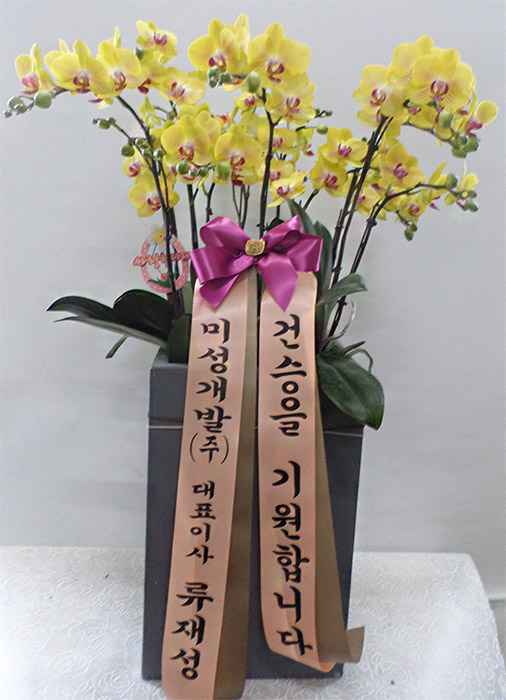 건승을 기원합니다
미성개발(주) 대표이사 류재성